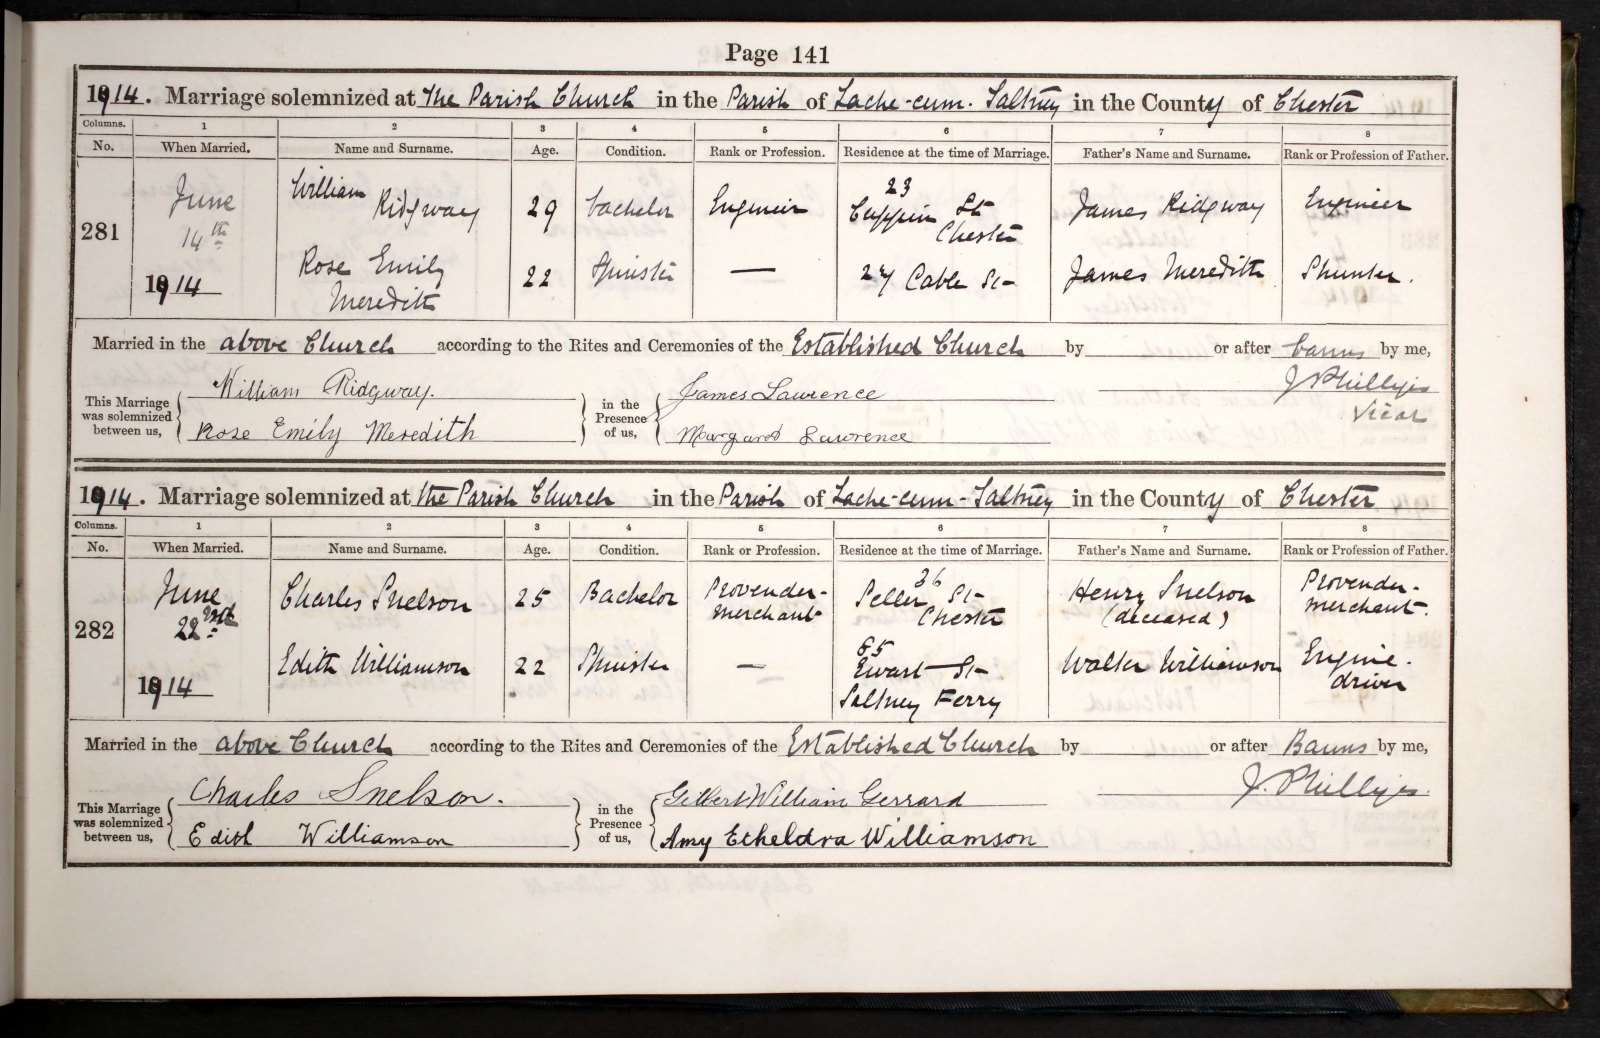 Page 141
1914. Marriage solemnized at the Parish Church in the Parish of Lache-cum-Saltney in the County of Chester
Columns. 1 2 3 4 5 6 7 8
No. When Married. Name and Surname. Age. Condition. Rank or Profession. Residence at the time of Marriage. Father's Name and Surname. Rank or Profession of Father.
281 June 14th 1914 William Ridgway 29 bachelor Engineer 23 Cuppin St Chester James Ridgway Engineer
Rose Emily Meredith 22 Spinster — 27 Cable St James Meredith Shunter.
Married in the above Church according to the Rites and Ceremonies of the Established Church by or after banns by me,
This Marriage was solemnized between us, William Ridgway. in the Presence of us, James Lawrence J Phillips
Rose Emily Meredith Margaret Lawrence Vicar
1914. Marriage solemnized at the Parish Church in the Parish of Lache-cum-Saltney in the County of Chester
Columns. 1 2 3 4 5 6 7 8
No. When Married. Name and Surname. Age. Condition. Rank or Profession. Residence at the time of Marriage. Father's Name and Surname. Rank or Profession of Father.
282 June 22nd 1914 Charles Snelson 25 Bachelor Provender-merchant 36 Seller St Chester Henry Snelson (deceased) Provender-merchant.
Edith Williamson 22 Spinster — 65 Ewart St Saltney Ferry Walter Williamson Engine-driver
Married in the above Church according to the Rites and Ceremonies of the Established Church by or after Banns by me,
This Marriage was solemnized between us, Charles Snelson. in the Presence of us, Gilbert William Gerrard J. Phillips.
Edith Williamson Amy Etheldra Williamson